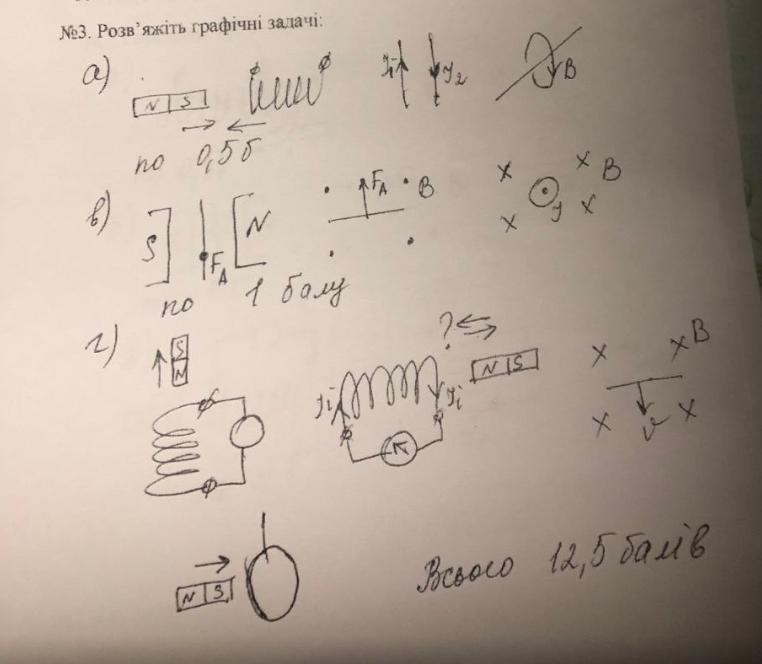 №3. Розв'яжіть графічні задачі:
а)
N S
I₁ I₂
B
по 0,5б
в)
S N
F_A
F_A B
B
I
по 1 балу
г)
S
N
Ii Ii
?
N S
B
v
N S
Всього 12,5 балів